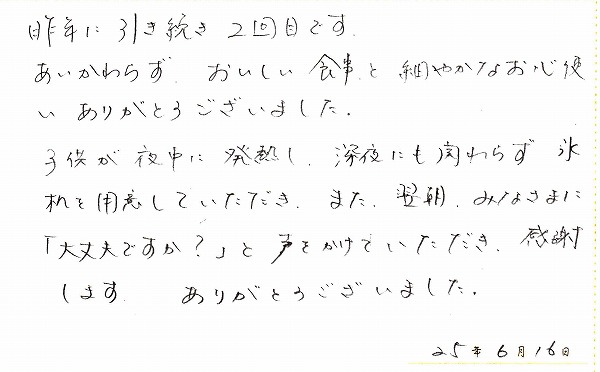 昨年に引き続き2回目です。
あいかわらず、おいしい食事と細やかなお心使
いありがとうございました。
子供が夜中に発熱し、深夜にも関わらず氷
枕を用意していただき、また、翌朝、みなさまに
「大丈夫ですか？」と声をかけていただき、感謝
します。ありがとうございました。
25年6月16日